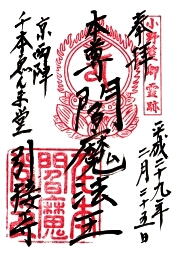 奉拝
小野篁卿霊跡
平成二十九年
二月二十五日
本尊 閻魔法王
京西陣
千本ゑんま堂 引接寺